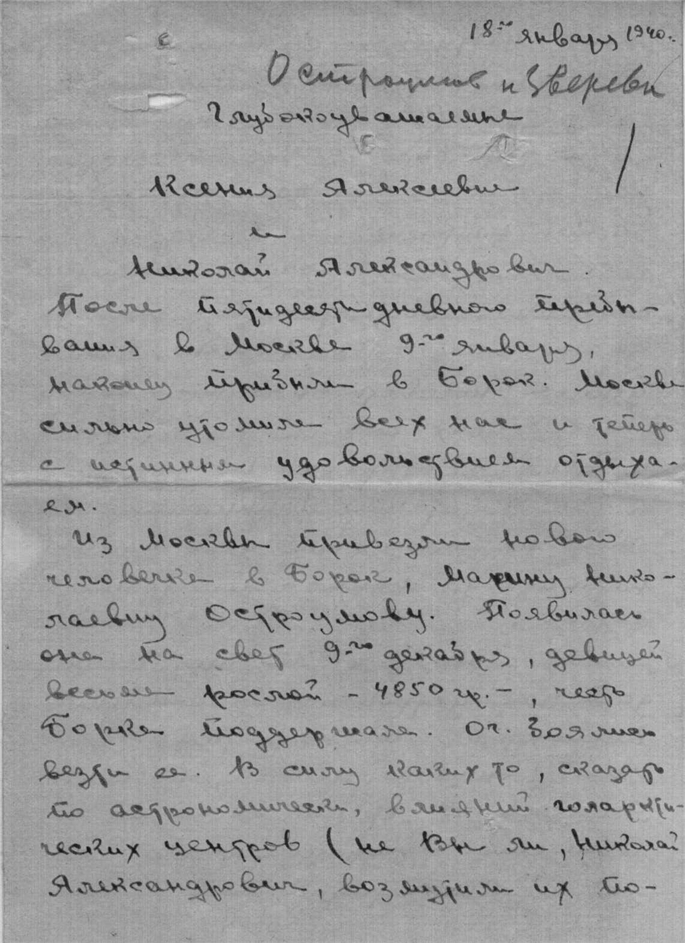 18го января 1940.
Остроумов и Зверева
Глубокоуважаемые
Ксения Алексеевна
и
Николай Александрович.
После пятидесятидневного пребы-
вания в Москве 9-го января,
наконец прибыли в Борок. Москва
сильно утомила всех нас и теперь
с истинным удовольствием отдыха-
ем.
Из Москвы привезли нового
человечка в Борок, Марину Нико-
лаевну Остроумову. Появилась
она на свет 9-го декабря, девицей
весьма рослой - 4850 гр. -, честь
Борка поддержала. Оч. боялись
везти ее. В силу каких то, сказать
по астрономически, влияний голаркти-
ческих центров (не Вы ли, Николай
Александрович, возмутили их по-